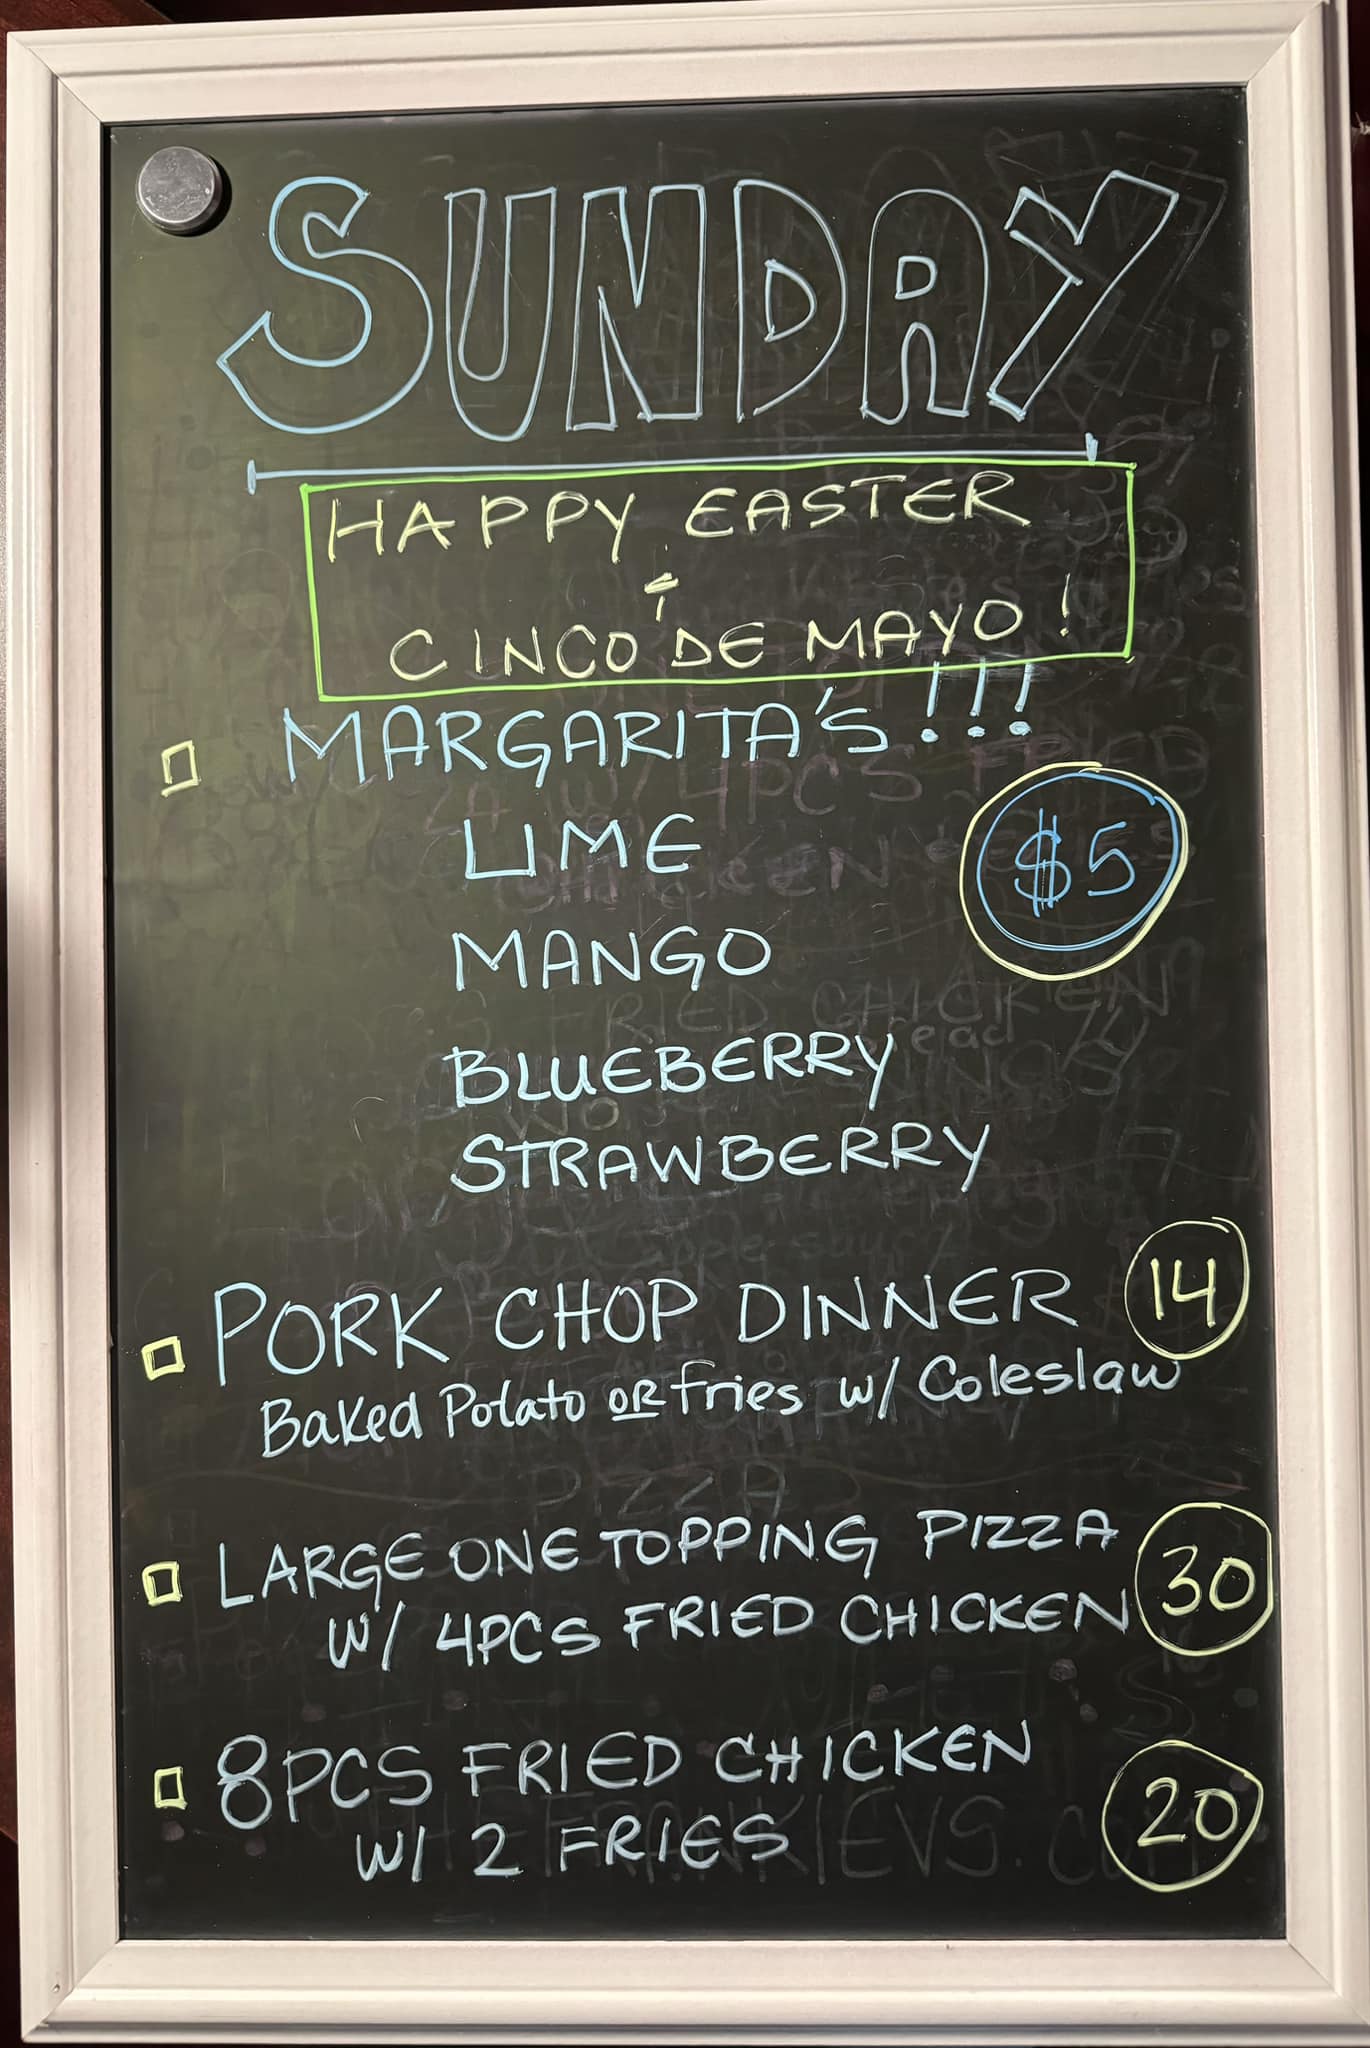 SUNDAY
HAPPY EASTER
&
CINCO DE MAYO!
MARGARITA'S!!!
LIME
$5
MANGO
BLUEBERRY
STRAWBERRY
PORK CHOP DINNER 14
Baked Potato OR fries w/ Coleslaw
LARGE ONE TOPPING PIZZA
W/ 4PCS FRIED CHICKEN 30
8PCS FRIED CHICKEN
W/ 2 FRIES 20